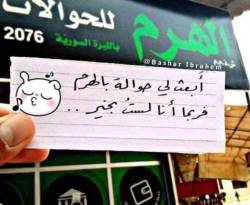 للحوالات
الهرم
2076
بالليرة السورية
@Bashar Ibrahem
أبعث لي حوالة بالهرم
فربما أنا لست بخير ..